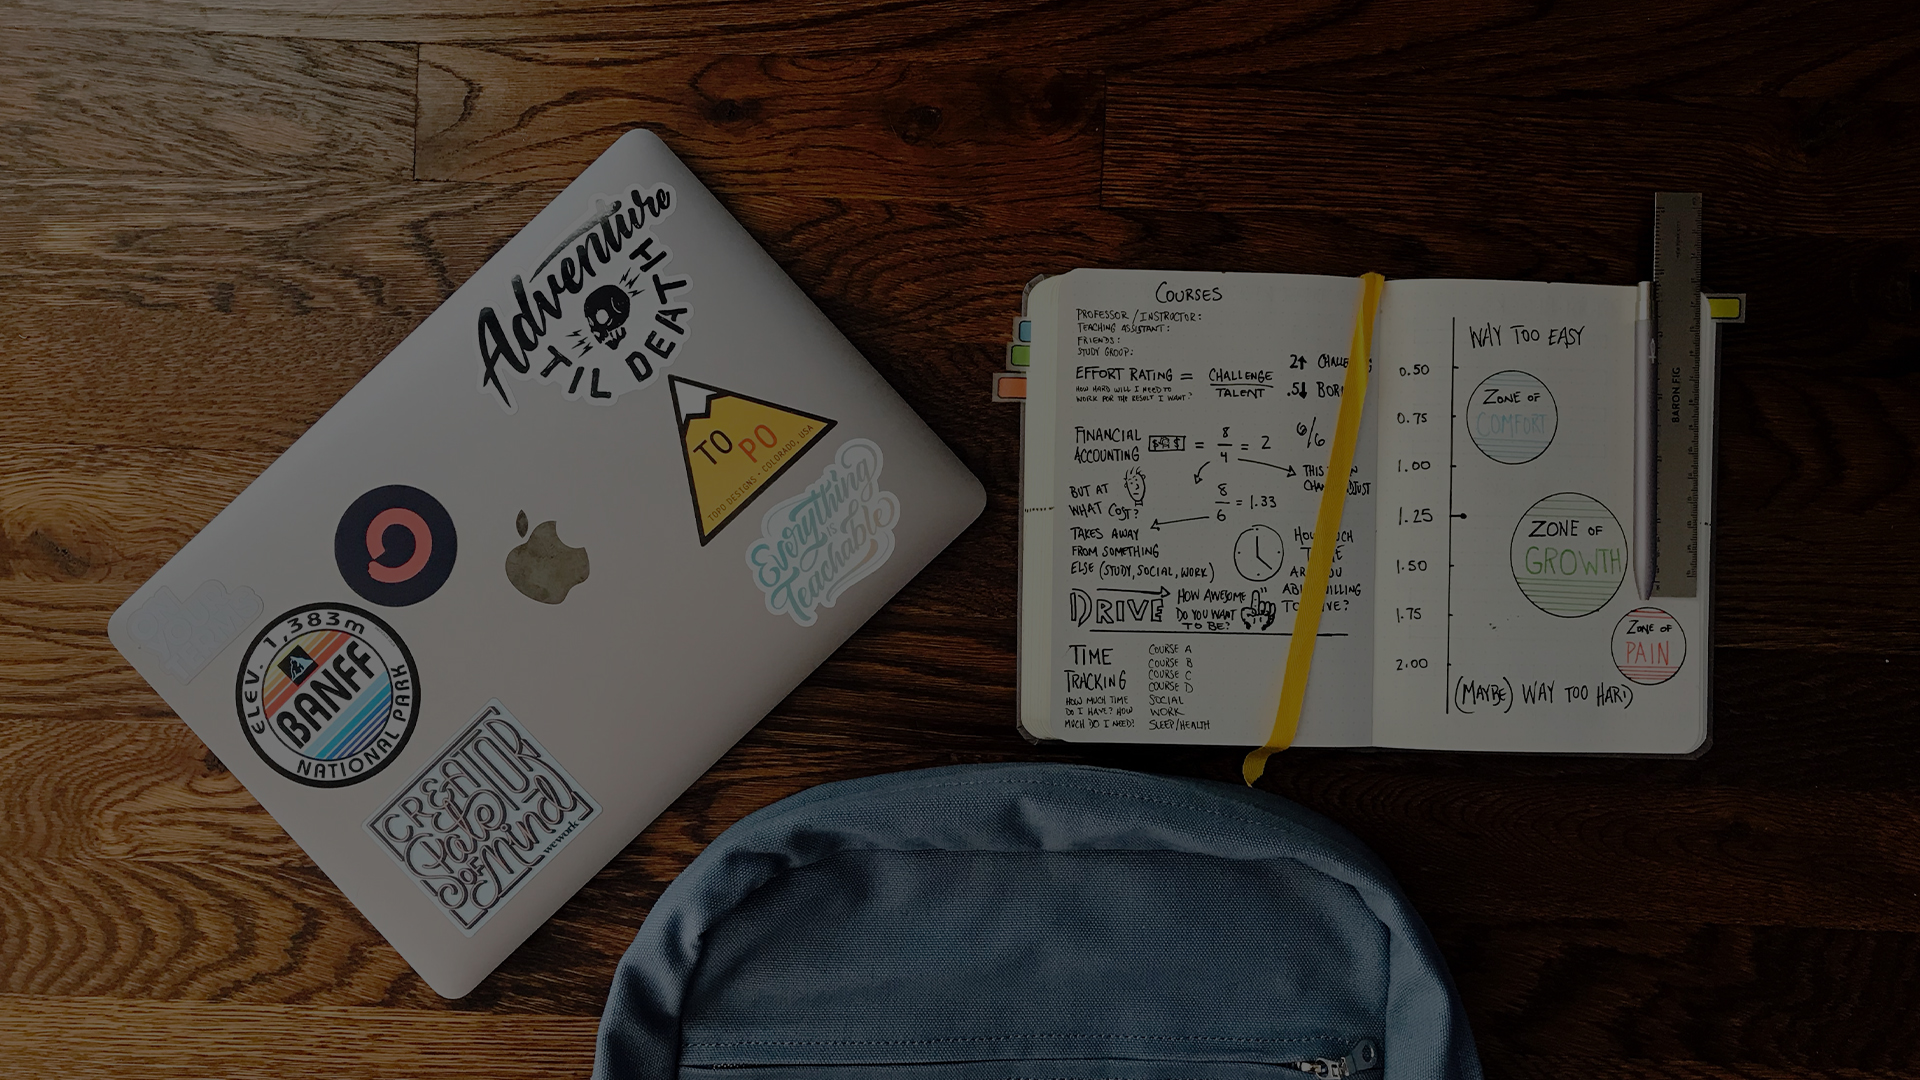 Adventure
TIL DEATH
TO PO
TOPO DESIGNS • COLORADO, USA
Everything
is
Teachable
ELEV. 1,383m
BANFF
NATIONAL PARK
CREATOR
State
OF
Mind
wework
COURSES
PROFESSOR / INSTRUCTOR:
TEACHING ASSISTANT:
FRIENDS:
STUDY GROUP:
EFFORT RATING = CHALLENGE
TALENT
HOW HARD WILL I NEED TO
WORK FOR THE RESULT I WANT?
2↑
.5↓
FINANCIAL
ACCOUNTING $$$ = 8/4 = 2
6/6
THIS
BUT AT
WHAT COST?
8/6 = 1.33
TAKES AWAY
FROM SOMETHING
ELSE (STUDY, SOCIAL, WORK)
DRIVE
HOW AWESOME
DO YOU WANT
TO BE?
TIME
TRACKING
HOW MUCH TIME
DO I HAVE? HOW
MUCH DO I NEED?
COURSE A
COURSE B
COURSE C
COURSE D
SOCIAL
WORK
SLEEP/HEALTH
WAY TOO EASY
0.50
ZONE OF
COMFORT
0.75
1.00
1.25
ZONE OF
GROWTH
1.50
1.75
ZONE OF
PAIN
2.00
(MAYBE) WAY TOO HARD
BARON FIG